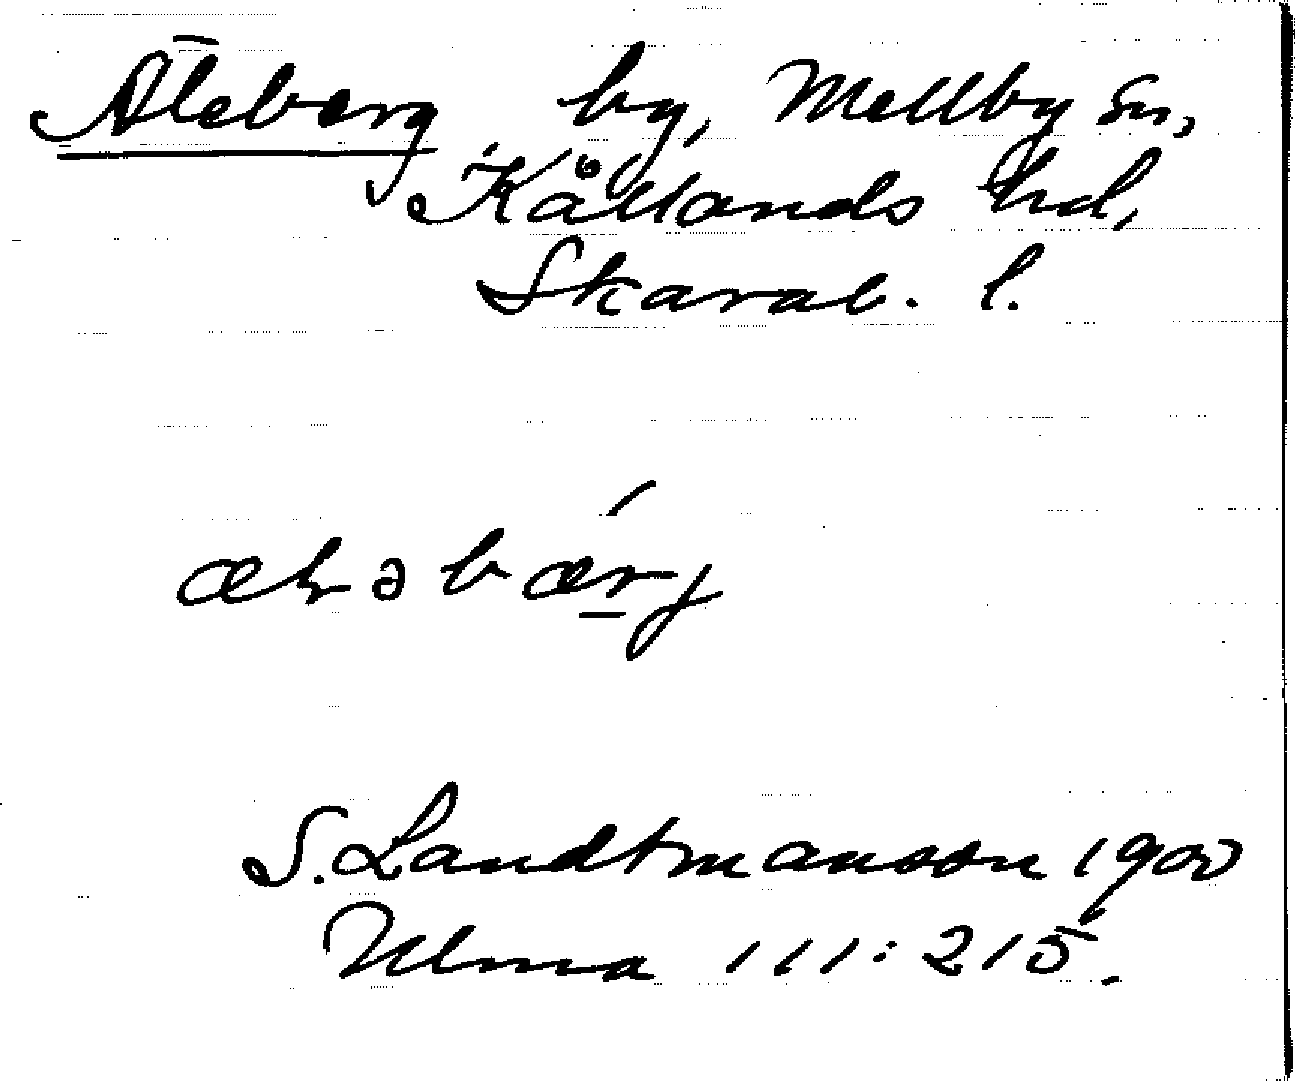 Äleberg by, Mellby sn,
Kållands hd,
Skarab. l.
S. Landtmanson 1900
Ulma 111:215.